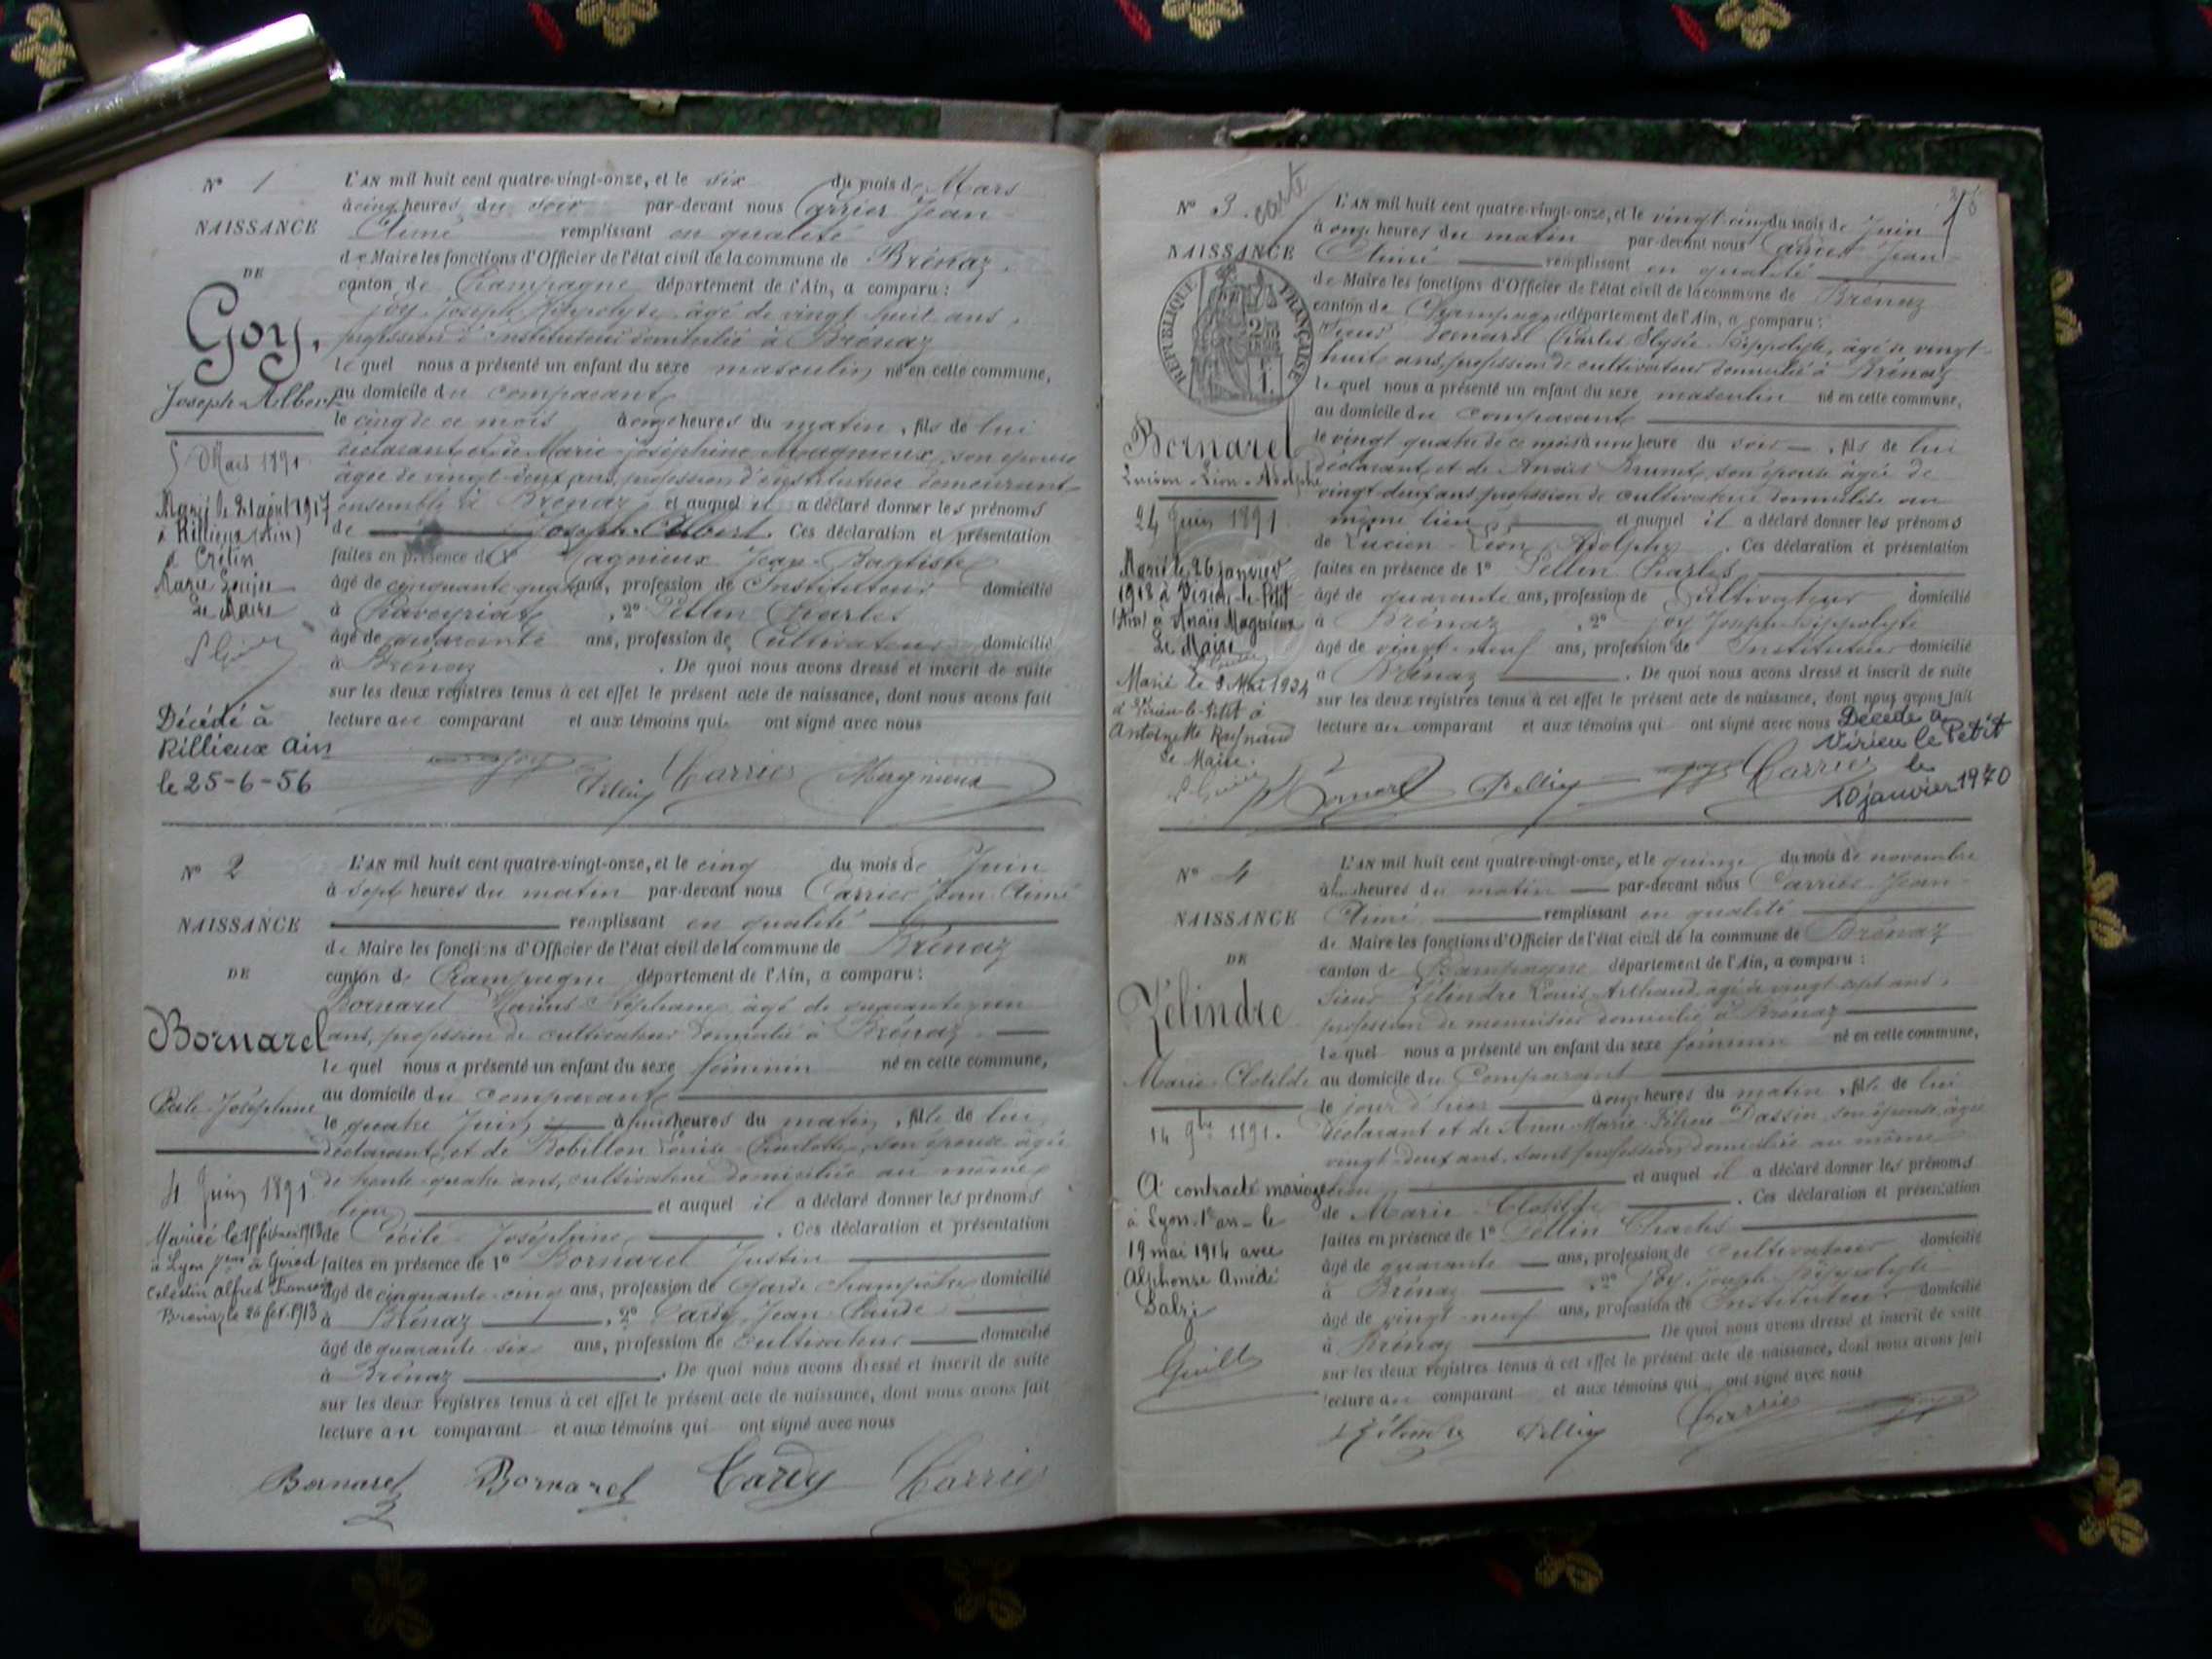 N° 1
NAISSANCE
DE
Goy,
Joseph Albert
5 Mars 1891
Marié le 21 août 1917
à Rillieux (Ain)
à Crétin
Marie Louise
Le Maire
Décédé à
Rillieux Ain
le 25-6-56
L'AN mil huit cent quatre-vingt-onze, et le six du mois de Mars
à cinq heures du soir par-devant nous Carrier Jean
Aimé remplissant en qualité
de Maire les fonctions d'Officier de l'état civil de la commune de Brénaz,
canton de Champagne département de l'Ain, a comparu :
Goy Joseph Hippolyte âgé de vingt huit ans,
profession d'instituteur domicilié à Brénaz
lequel nous a présenté un enfant du sexe masculin né en cette commune,
au domicile du comparant
le cinq de ce mois à onze heures du matin, fils de lui
déclarant et de Marie Joséphine Magnieux, son épouse
âgée de vingt-deux ans, profession d'institutrice demeurant
ensemble à Brénaz et auquel il a déclaré donner les prénoms
de Joseph Albert. Ces déclaration et présentation
faites en présence de 1° Magnieux Jean-Baptiste
âgé de cinquante quatre ans, profession de Instituteur domicilié
à , 2° Pellin Charles
âgé de quarante ans, profession de Cultivateur domicilié
à Brénaz . De quoi nous avons dressé et inscrit de suite
sur les deux registres tenus à cet effet le présent acte de naissance, dont nous avons fait
lecture au comparant et aux témoins qui ont signé avec nous
Goy Pellin Carrier Magnieux
N° 2
NAISSANCE
DE
Bornarel
Cécile Joséphine
4 Juin 1891
Mariée le février 1913
à Lyon à Girod
Célestin Alfred François
Brénaz le 26 fév. 1913
L'AN mil huit cent quatre-vingt-onze, et le cinq du mois de Juin
à sept heures du matin par-devant nous Carrier Jean Aimé
remplissant en qualité
de Maire les fonctions d'Officier de l'état civil de la commune de Brénaz
canton de Champagne département de l'Ain, a comparu :
Bornarel Marius Stéphane âgé de quarante
ans, profession de cultivateur domicilié à Brénaz
lequel nous a présenté un enfant du sexe féminin né en cette commune,
au domicile du comparant
le quatre Juin à heures du matin, fille de lui
déclarant et de Bobillon Louise Charlotte, son épouse âgée
de trente quatre ans, cultivatrice domiciliée au même
lieu et auquel il a déclaré donner les prénoms
de Cécile Joséphine . Ces déclaration et présentation
faites en présence de 1° Bornarel Justin
âgé de cinquante-cinq ans, profession de Garde Champêtre domicilié
à Brénaz , 2° Cardy Jean Claude
âgé de quarante six ans, profession de Cultivateur domicilié
à Brénaz . De quoi nous avons dressé et inscrit de suite
sur les deux registres tenus à cet effet le présent acte de naissance, dont nous avons fait
lecture au comparant et aux témoins qui ont signé avec nous
Bornarel Bornarel Cardy Carrier
N° 3 carte
NAISSANCE
RÉPUBLIQUE FRANÇAISE
Bornarel
Lucien-Léon-Adolphe
24 Juin 1891
Marié le 26 janvier
1918 à Virieu-le-Petit
(Ain) à Anaïs Magnieux
Le Maire
Marié le 8 Mai 1934
à Virieu-le-Petit à
Antoinette Raynaud
Le Maire.
L'AN mil huit cent quatre-vingt-onze, et le vingt-cinq du mois de Juin
à onze heures du matin par-devant nous Carrier Jean
Aimé remplissant en qualité
de Maire les fonctions d'Officier de l'état civil de la commune de Brénaz
canton de Champagne département de l'Ain, a comparu :
Sieur Bornarel Charles Elysée Hippolyte, âgé de vingt-
huit ans, profession de cultivateur domicilié à Brénaz
lequel nous a présenté un enfant du sexe masculin né en cette commune,
au domicile du comparant
le vingt quatre de ce mois à une heure du soir, fils de lui
déclarant et de Anaïs Brunet, son épouse âgée de
vingt-deux ans, profession de cultivatrice domiciliée au
même lieu, et auquel il a déclaré donner les prénoms
de Lucien Léon Adolphe . Ces déclaration et présentation
faites en présence de 1° Pellin Charles
âgé de quarante ans, profession de Cultivateur domicilié
à Brénaz , 2° Goy Joseph Hippolyte
âgé de vingt-neuf ans, profession de Instituteur domicilié
à Brénaz . De quoi nous avons dressé et inscrit de suite
sur les deux registres tenus à cet effet le présent acte de naissance, dont nous avons fait
lecture au comparant et aux témoins qui ont signé avec nous
Décédé à
Virieu le Petit
le
10 janvier 1970
Bornarel Pellin Goy Carrier
N° 4
NAISSANCE
DE
Zélindre
Marie-Clotilde
14 9bre 1891.
A contracté mariage
à Lyon 1er arr. le
19 mai 1914 avec
Alphonse Amédé
Balzi
L'AN mil huit cent quatre-vingt-onze, et le quinze du mois de novembre
à heures du matin par-devant nous Carrier Jean
Aimé remplissant en qualité
de Maire les fonctions d'Officier de l'état civil de la commune de Brénaz
canton de Champagne département de l'Ain, a comparu :
Sieur Zélindre Louis Arthaud, âgé de vingt sept ans,
profession de menuisier domicilié à Brénaz
lequel nous a présenté un enfant du sexe féminin né en cette commune,
au domicile du Comparant
le jour d'hier à onze heures du matin, fille de lui
déclarant et de Anne-Marie Dassin, son épouse, âgée
vingt-deux ans, sans profession, domiciliée au même
lieu et auquel il a déclaré donner les prénoms
de Marie Clotilde . Ces déclaration et présentation
faites en présence de 1° Pellin Charles
âgé de quarante ans, profession de Cultivateur domicilié
à Brénaz , 2° Goy Joseph Hippolyte
âgé de vingt-neuf ans, profession de Instituteur domicilié
à Brénaz De quoi nous avons dressé et inscrit de suite
sur les deux registres tenus à cet effet le présent acte de naissance, dont nous avons fait
lecture au comparant et aux témoins qui ont signé avec nous
Zélindre Pellin Carrier Goy